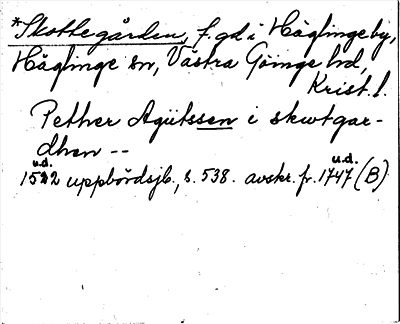 *Skottegården, f. gd i Häglinge by,
Häglinge sn, Västra Göinge hd,
Krist. l.
Pether Agütssen i skwtgar-
dhen --
u.d. u.d.
1522 uppbördsjb., s. 538. avskr. fr. 1747 (B)